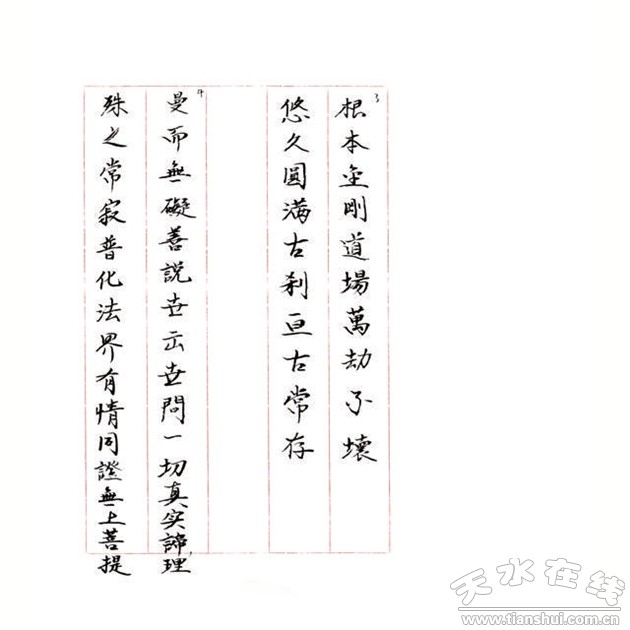 3
根本金剛道場萬劫不壞
悠久圓滿古刹亘古常存
4
曼而無礙善説世出世問一切真实諦理
殊之常寂普化法界有情同證無上菩提
天水在线
www.tianshui.com.cn